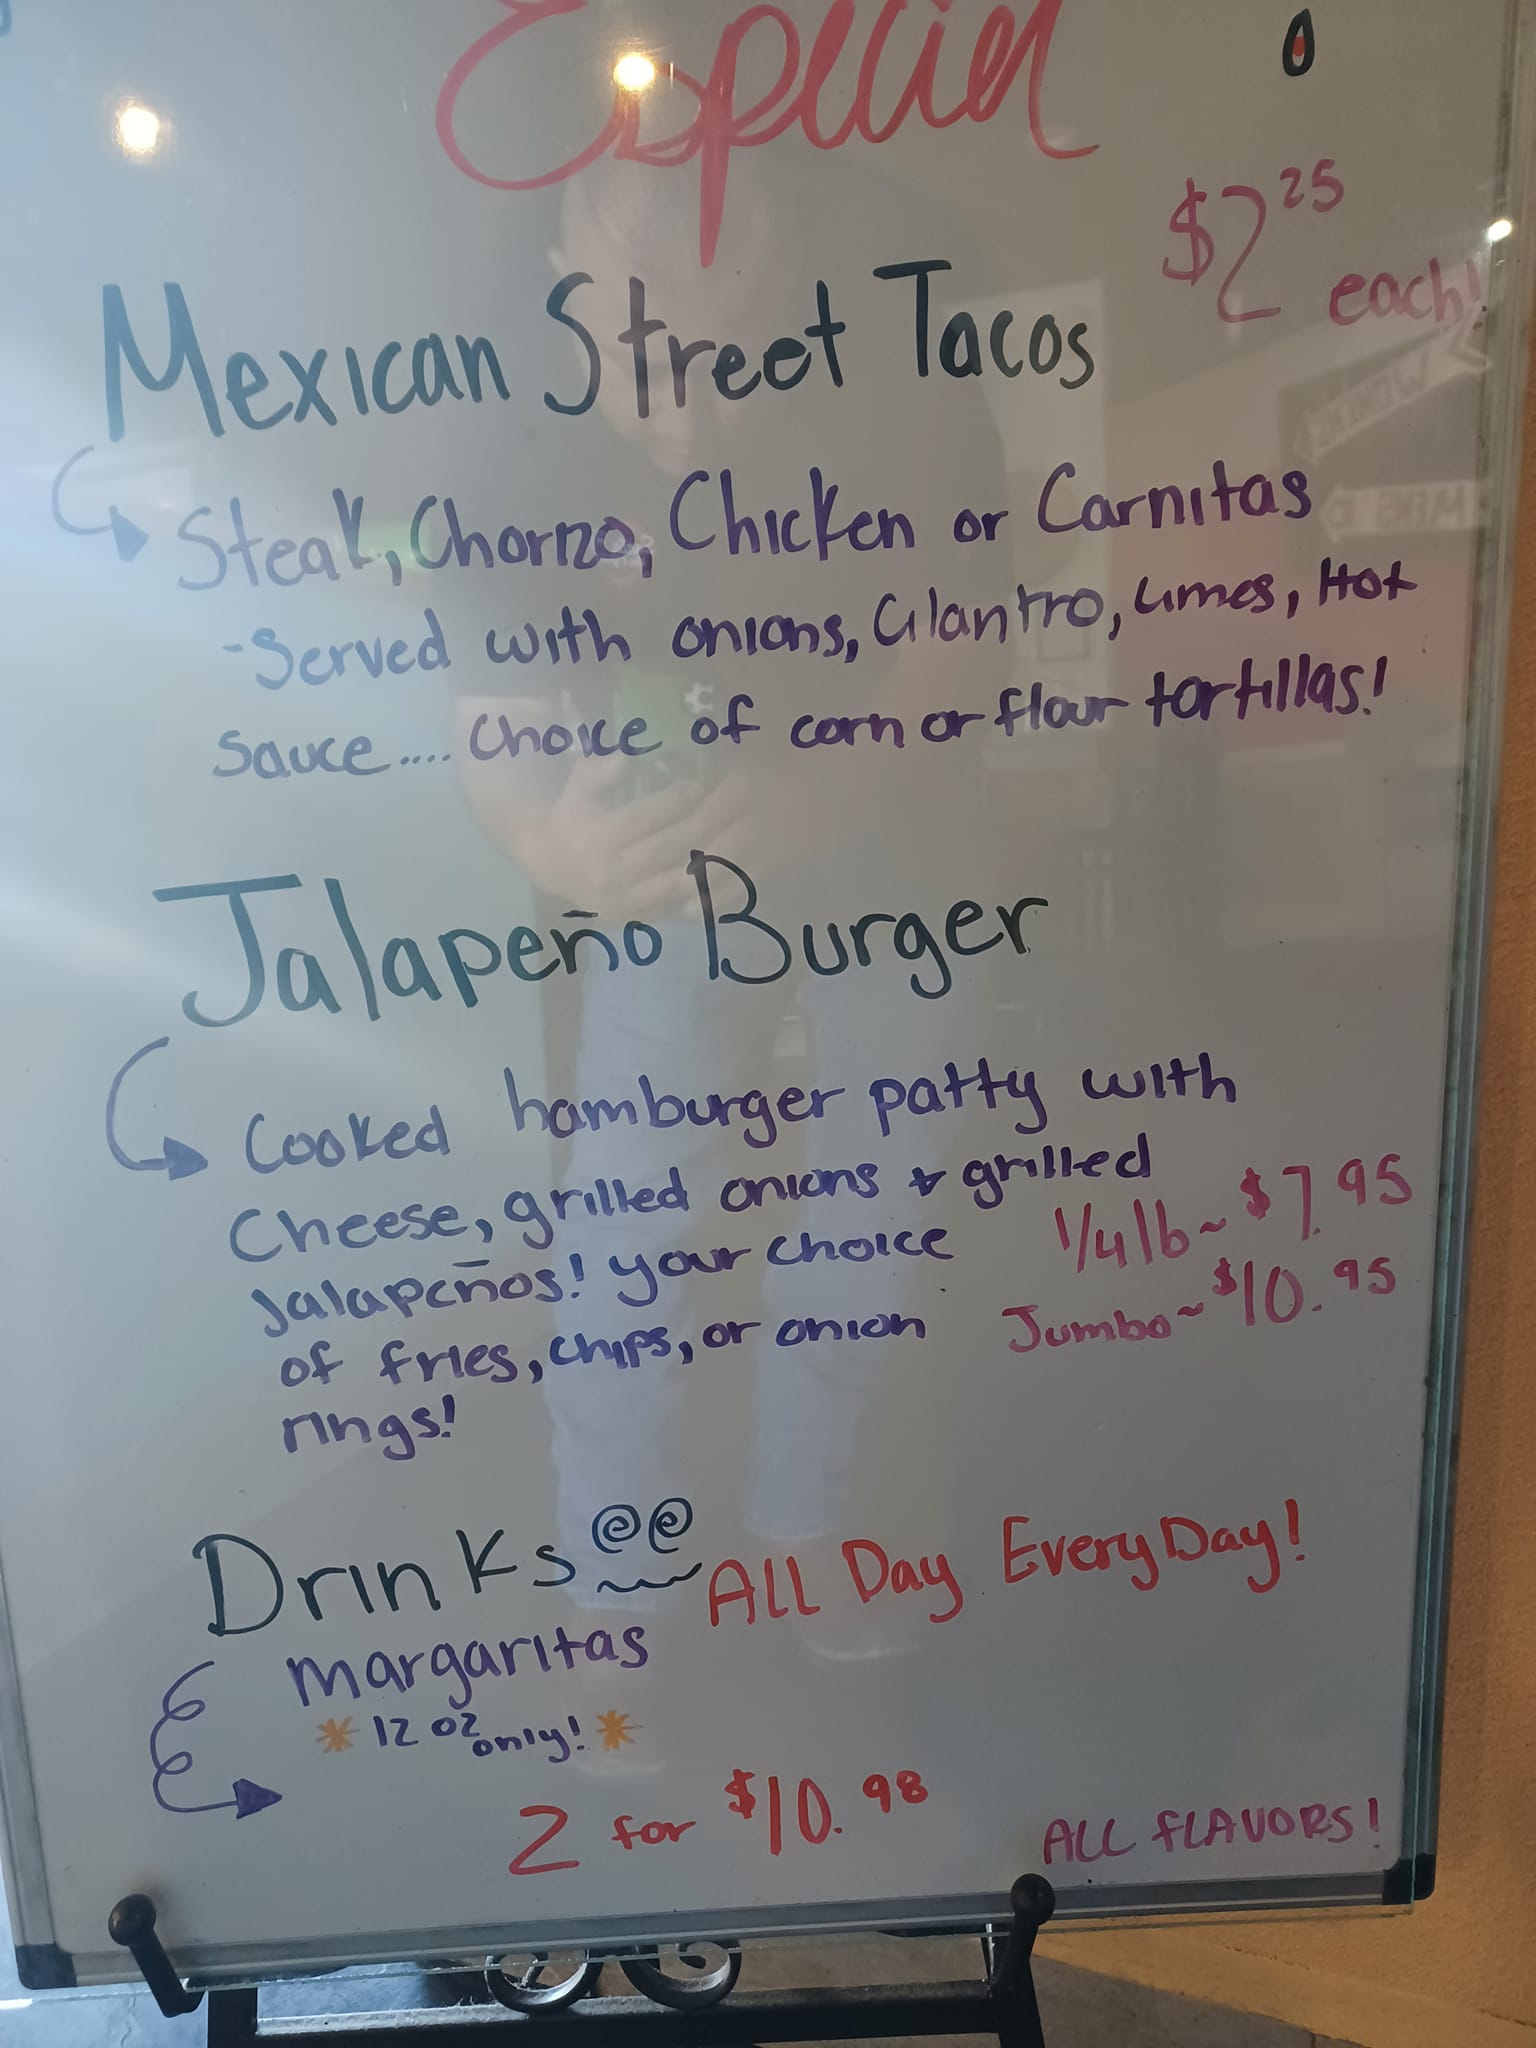 Especial
$2.25
each!
Mexican Street Tacos
Steak, Chorizo, Chicken or Carnitas
-Served with onions, Cilantro, Limes, Hot
Sauce.... Choice of corn or flour tortillas!
Jalapeño Burger
Cooked hamburger patty with
Cheese, grilled onions & grilled
Jalapeños! your choice
of fries, chips, or onion
rings!
1/4 lb ~ $7.95
Jumbo ~ $10.95
Drinks
All Day EveryDay!
Margaritas
*12 oz only!*
2 for $10.98
ALL FLAVORS!